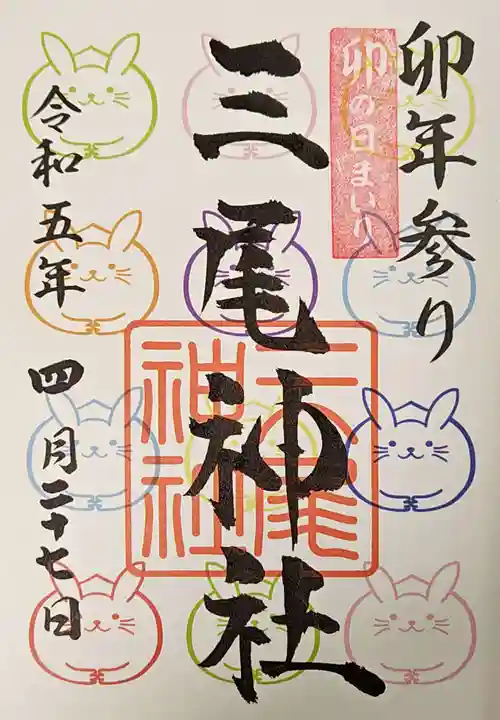 卯年参り
卯の日まいり
三尾神社
三尾
神社
令和五年
四月二十七日